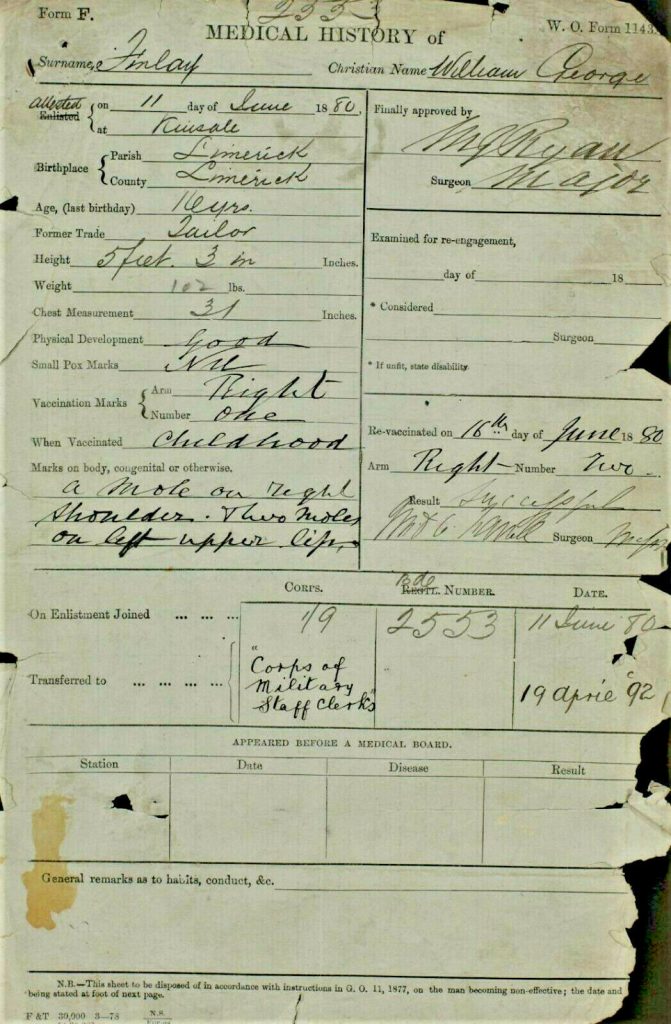 Form F.
2553
W. O. Form 1143
MEDICAL HISTORY of
Surname, Finlay Christian Name William George
attested
Enlisted on 11 day of June 1880,
at Kinsale
Birthplace Parish Limerick
County Limerick
Age, (last birthday) 16 yrs.
Former Trade Tailor
Height 5 feet. 3 in Inches.
Weight 102 lbs.
Chest Measurement 31 Inches.
Physical Development Good
Small Pox Marks Nil
Vaccination Marks Arm Right
Number One
When Vaccinated Childhood
Marks on body, congenital or otherwise.
a mole on right
shoulder. Two moles
on left upper lip,
Finally approved by
Ryan
Surgeon Major
Examined for re-engagement,
day of 18
* Considered
Surgeon
* If unfit, state disability.
Re-vaccinated on 16th day of June 1880
Arm Right Number Two
Result Successful
Surgeon Major
CORPS. Bde REGTL. NUMBER. DATE.
On Enlistment Joined ... ... ... 1/9 2553 11 June 80
Transferred to ... ... ... ... "Corps of
Military
Staff Clerks" 19 April 92
APPEARED BEFORE A MEDICAL BOARD.
Station Date Disease Result
General remarks as to habits, conduct, &c.
N.B.—This sheet to be disposed of in accordance with instructions in G. O. 11, 1877, on the man becoming non-effective; the date and
being stated at foot of next page.
F & T 30,000 3—78 N.S.